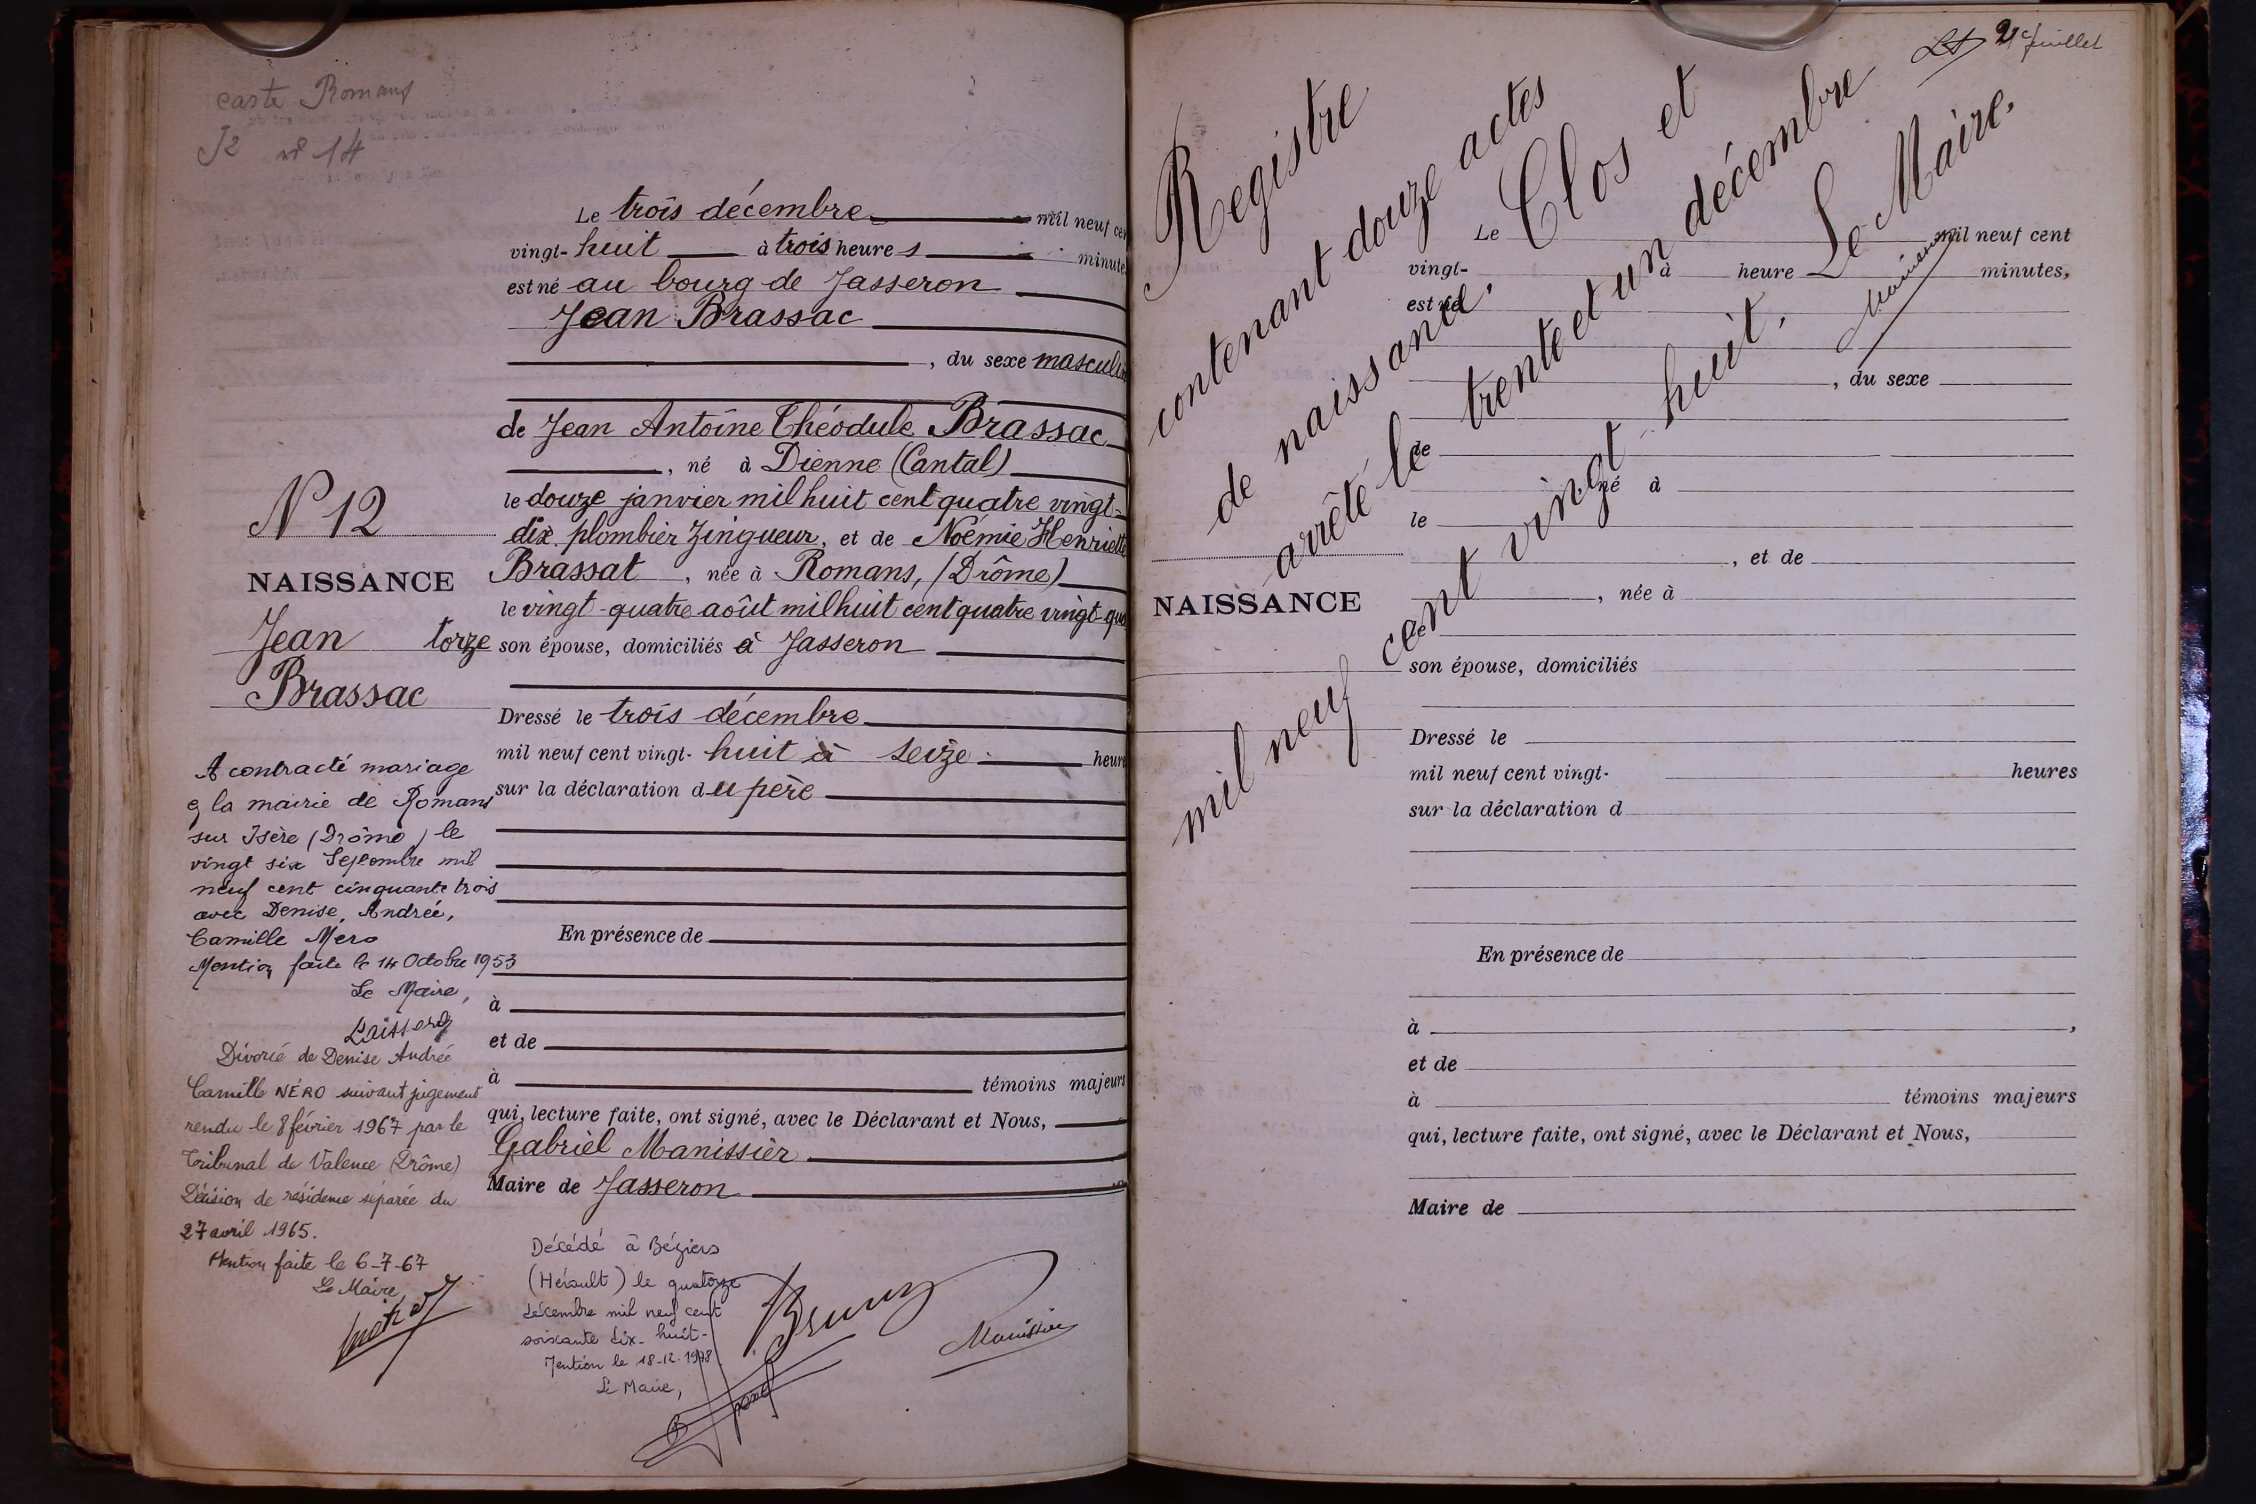 carte Romans
J2 nº 14
Le trois décembre mil neuf cen
vingt-huit à trois heures minute
est né au bourg de Jasseron
Jean Brassac
, du sexe masculin
de Jean Antoine Théodule Brassac
, né à Dienne (Cantal)
le douze janvier mil huit cent quatre vingt-
dix plombier zingueur, et de Noémie Henriette
Brassat, née à Romans, (Drôme)
le vingt-quatre août mil huit cent quatre vingt-qua
torze son épouse, domiciliés à Jasseron
Dressé le trois décembre
mil neuf cent vingt-huit à seize heure
sur la déclaration du père
En présence de
à
et de
à témoins majeurs
qui, lecture faite, ont signé, avec le Déclarant et Nous,
Gabriel Manissier
Maire de Jasseron
Manissier
Nº 12
NAISSANCE
Jean
Brassac
A contracté mariage
à la mairie de Romans
sur Isère (Drôme) le
vingt six Septembre mil
neuf cent cinquante trois
avec Denise, Andrée,
Camille Mero
Mention faite le 14 Octobre 1953
Le Maire,
Divorcé de Denise Andrée
Camille NÉRO suivant jugement
rendu le 8 février 1967 par le
Tribunal de Valence (Drôme)
Décision de résidence séparée du
27 avril 1965.
Mention faite le 6-7-67
Le Maire
Décédé à Béziers
(Hérault) le quatorze
décembre mil neuf cent
soixante dix-huit-
Mention le 18-12-1978
Le Maire,
21e feuillet
Registre
contenant douze actes
de naissance. Clos et
arrêté le trente et un décembre
mil neuf cent vingt huit.
Le Maire.
Manissier
Le mil neuf cent
vingt- à heure minutes,
est né
, du sexe
de
né à
le
, et de
NAISSANCE
, née à
le
son épouse, domiciliés
Dressé le
mil neuf cent vingt- heures
sur la déclaration d
En présence de
à ,
et de
à témoins majeurs
qui, lecture faite, ont signé, avec le Déclarant et Nous,
Maire de